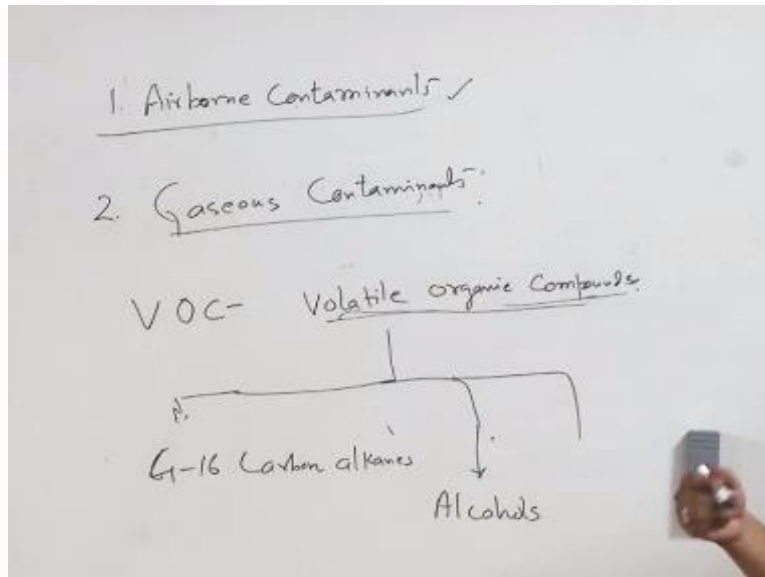 1. Airborne Contaminants ✓
2. Gaseous Contaminants
VOC- Volatile organic Compounds.
6-16 Carbon alkanes
Alcohols